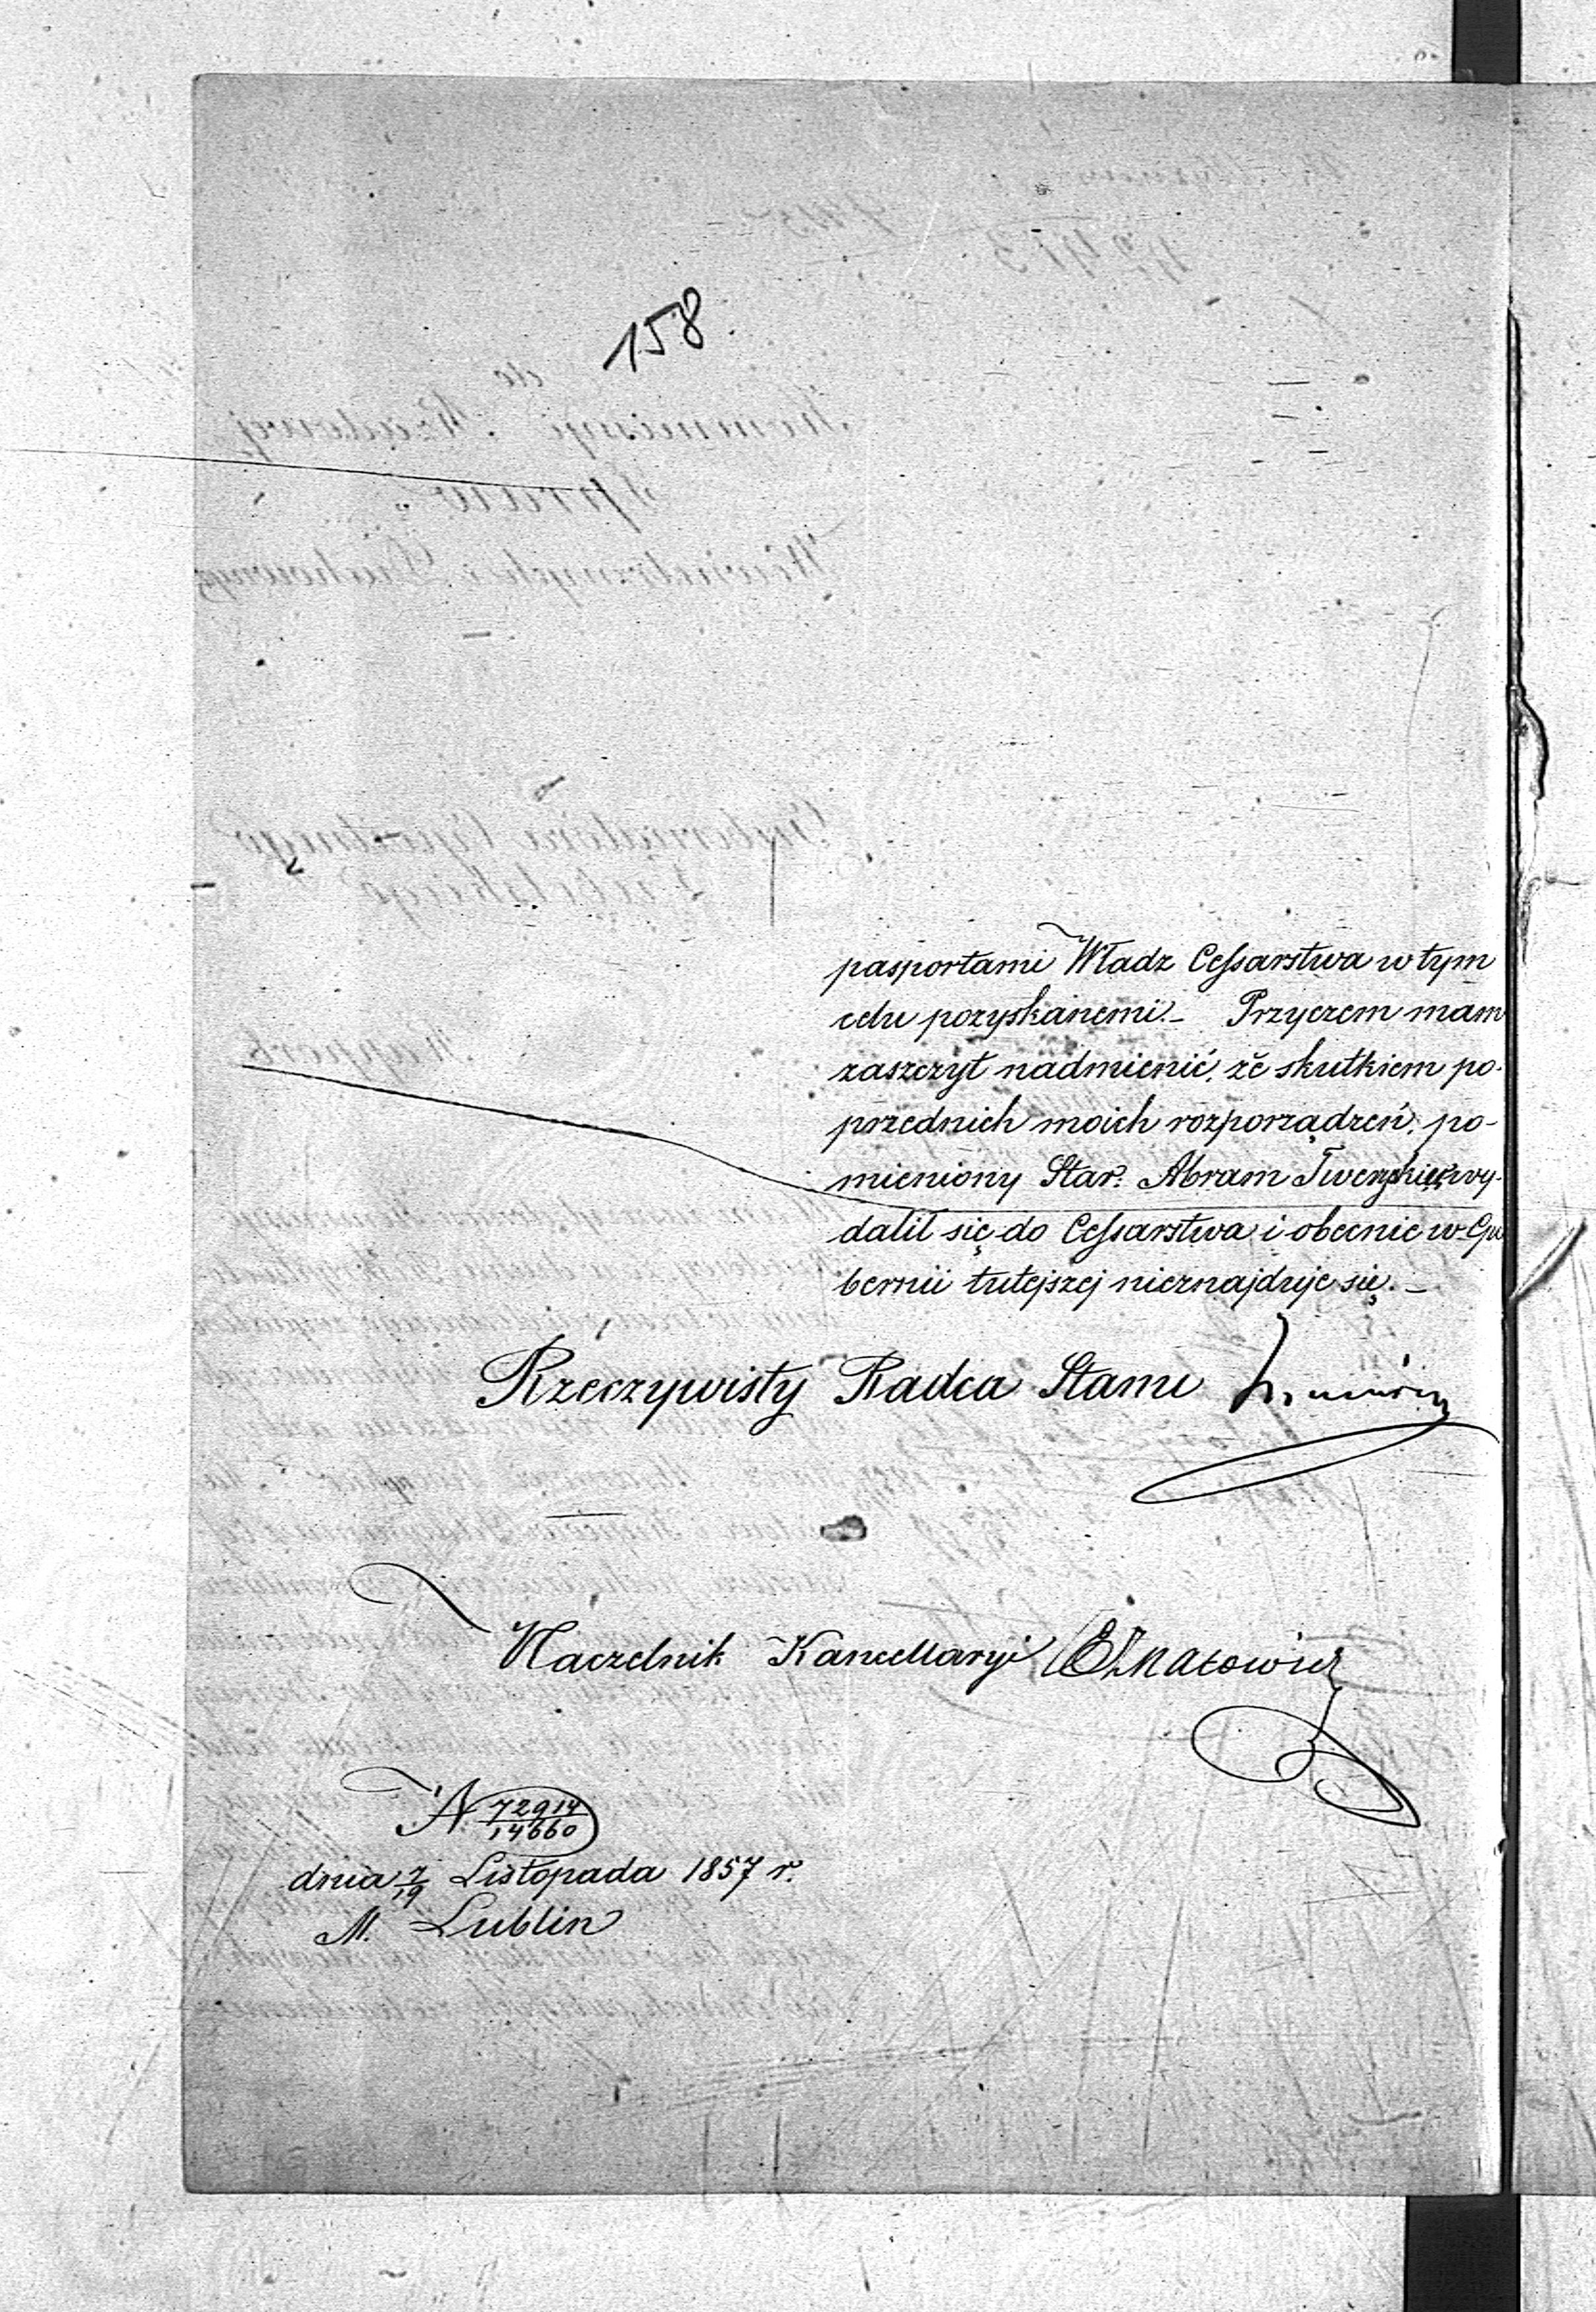 158.
pasportami Władz Cessarstwa w tym
celu pozyskanemi._ Przyczem mam
zaszczyt nadmienić, że skutkiem po-
przednich moich rozporządzeń, po-
mieniony Star. Abram Twerski wy-
dalił się do Cessarstwa i obecnie w Gu
bernii tutejszej nieznajduje się._
Rzeczywisty Radca Stanu
Naczelnik Kancellaryi
N 72914
14660
dnia 7/19 Listopada 1857 r.
M. Lublin